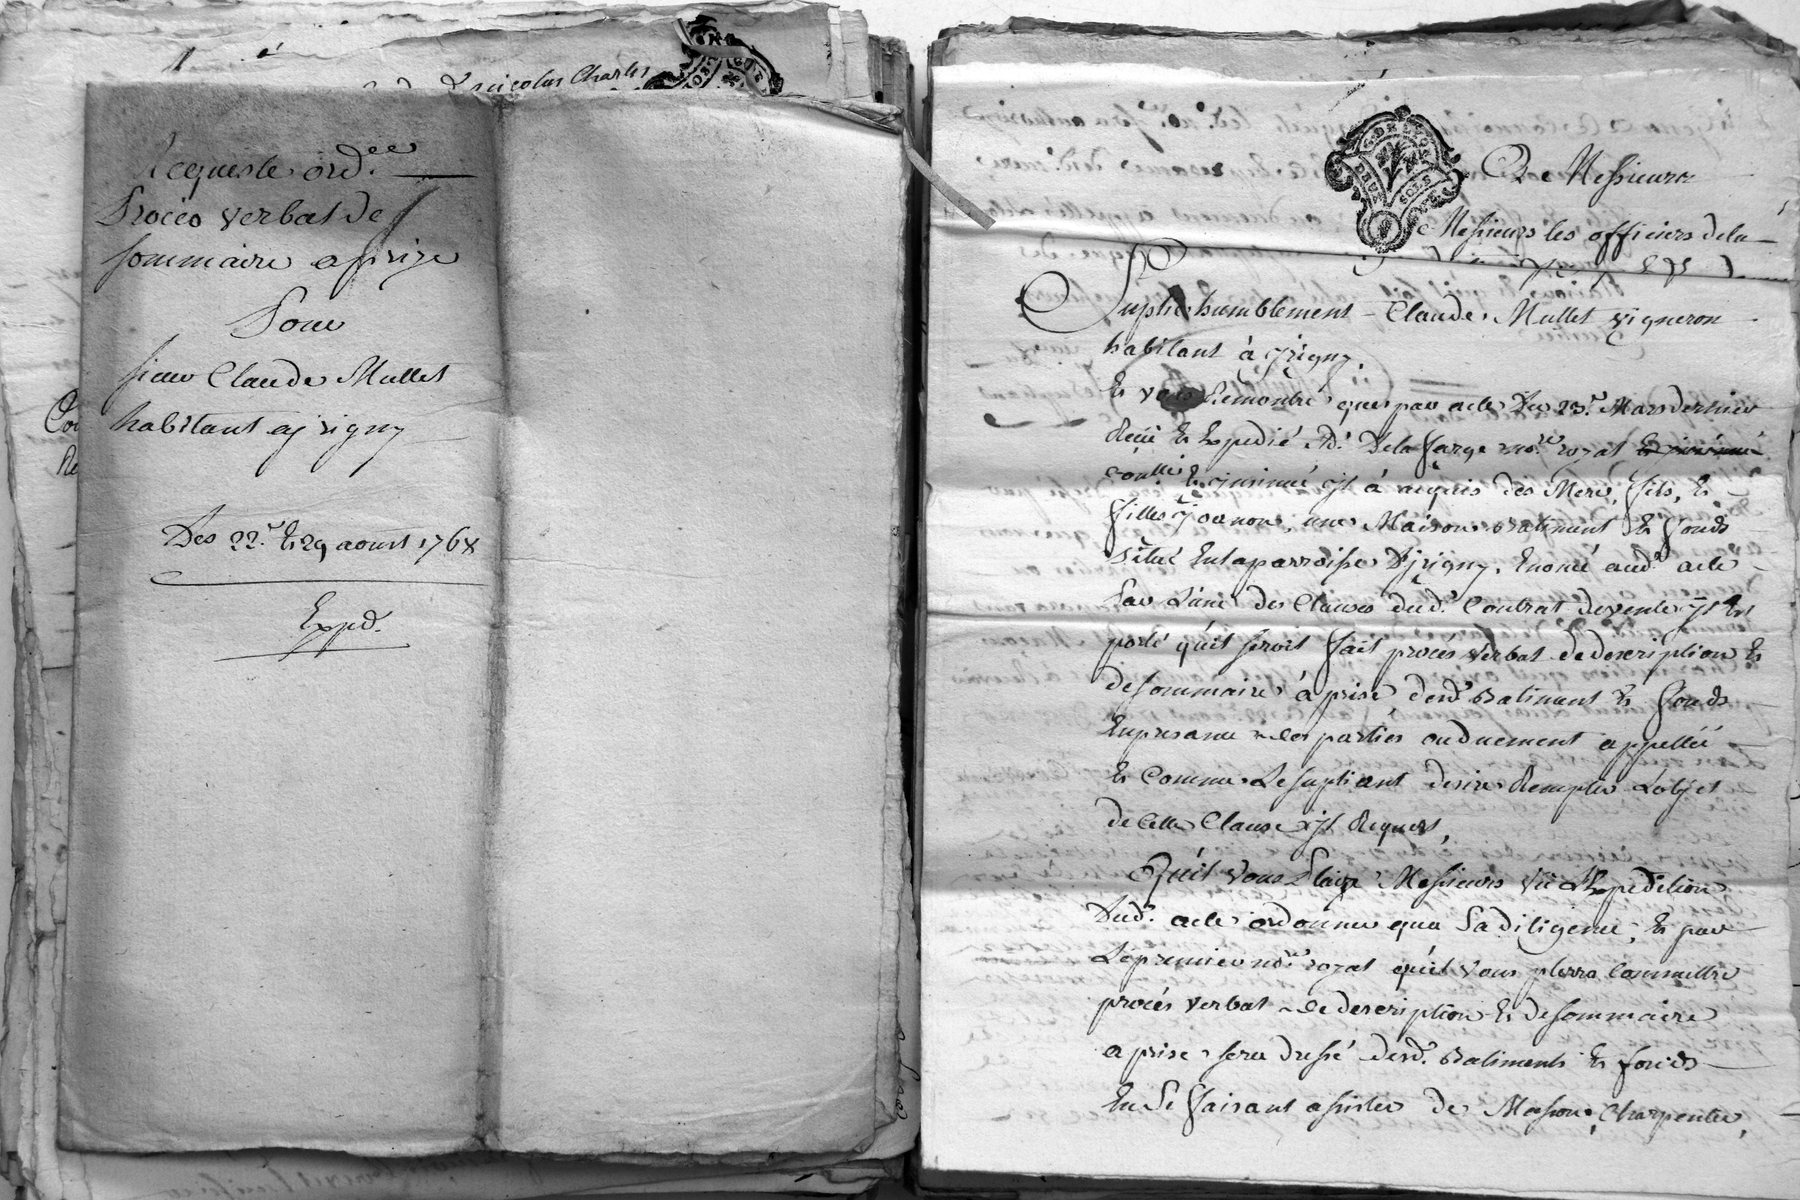 nicolas Charles
Requeste ord.ee
Proces verbal de
sommaire aprize
Pour
sieur Claude Mullet
habitant a jrigny
Des 22.e Et 29 aoust 1768
Exped.
De Messieurs
Messieurs les officiers de la
Suplie humblement Claude Mullet vigneron
habitant à jrigny.
Et vous Remontre que par acte Du 23.e Mars dernier
Reçu Et Expedié Me. Delafarge no.re royal
controllé Et jnsinué jl à acquis des Mere, fils, Et
filles joanon, une Maison Batiment Et fonds
situé En la parroisse D'jrigny, Enoncé aud. acte
Par L'une des Clauses dud. Contrat de vente jl Est
porté qu'il seroit fait procés verbal de description Et
de sommaire à prise desd. Batiment Et fonds
En presance des parties ou duement appellée
Et Comme Le supliant desire Remplir L'objet
de Cette Clause jl Requert,
Qu'il vous Plaize Messieurs vû L'Expedition
Dud. acte ordonner que Sa Diligence, Et par
Le premier no.re royal qu'il vous plerra Commettre
procés verbal de description Et de sommaire
a prise sera dressé desd. Batiments Et fonds
En Se faisant assister de Masson, Charpentier,